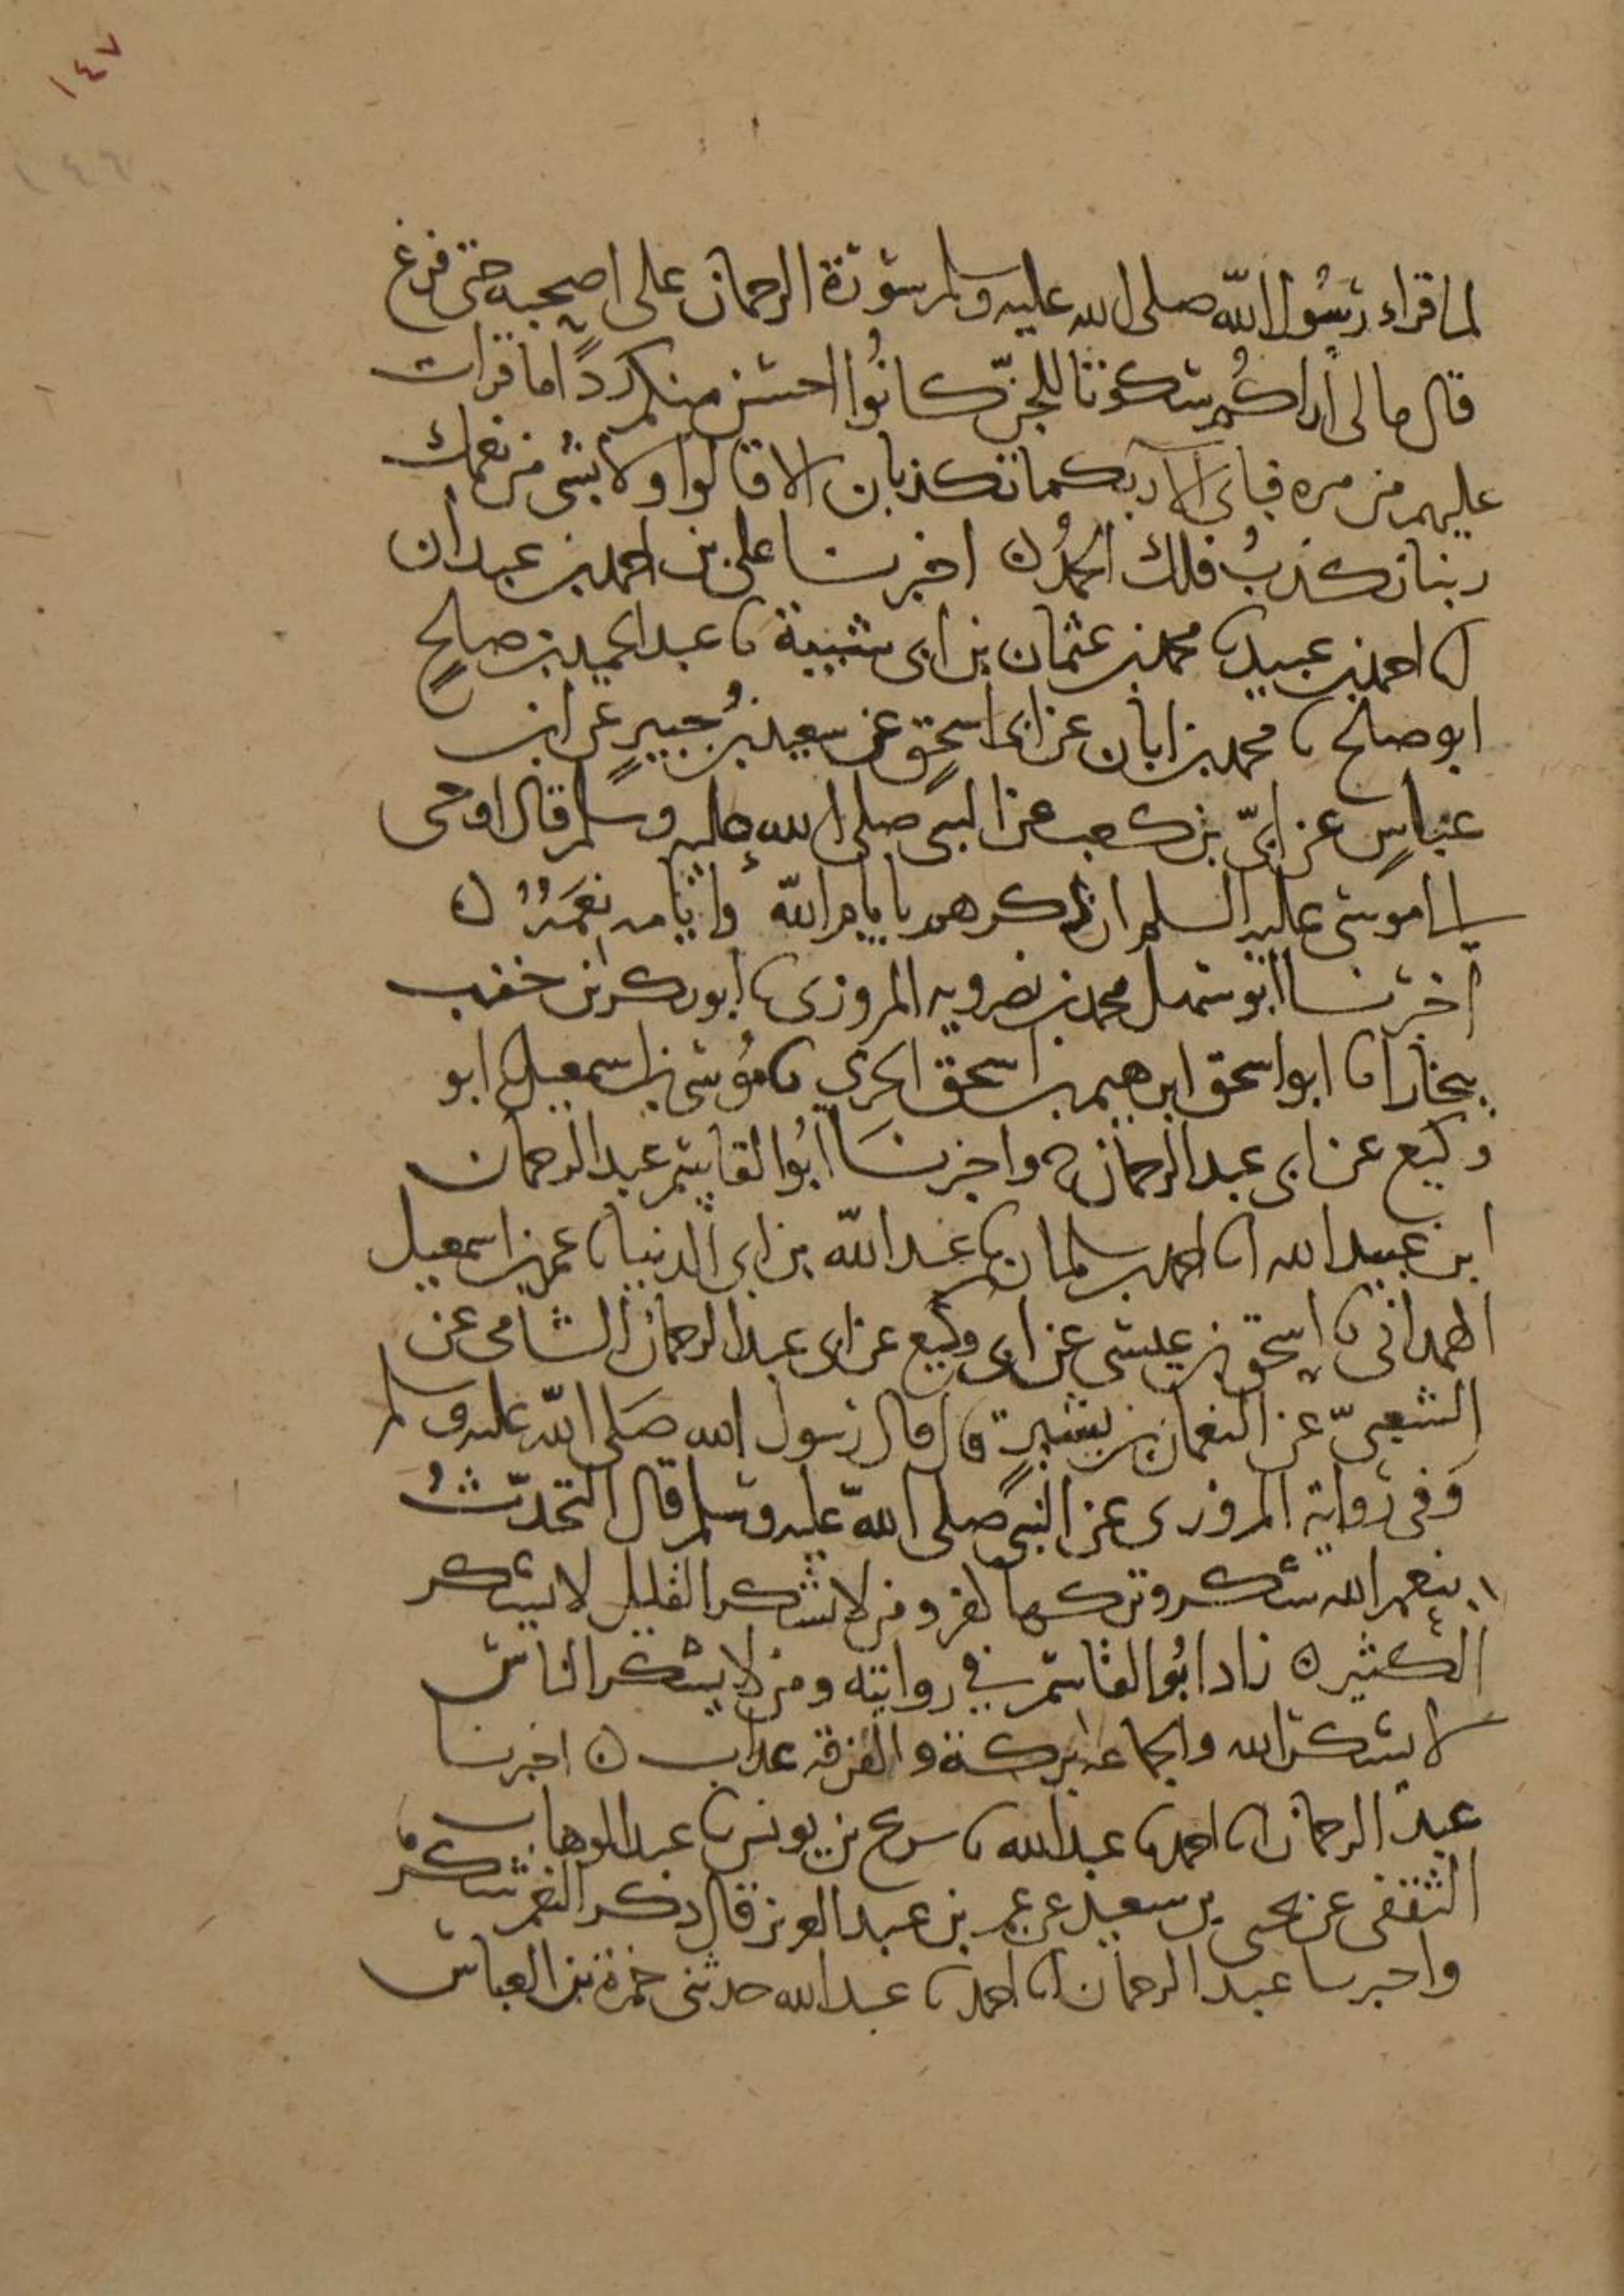 ١٤٧
١٤٦
لما قراء رسول الله صلى الله عليه وسلم سورة الرحمان على اصحبه حتى فرغ
قال ما لى أراكم سكوتا للجنّ كانُوا احسن منكم ردًّا ما قرات
عليهم من مره فباى الا ربكما تكذبان الا قالوا ولا بشى من نعمك
ربنا نكذبُ فلك الحمدُ ه اخبرنا على بن احمد بن عبدان
انا احمد بن عبيد نا محمد بن عثمان بن ابى شيبة نا عبد الحميد بن صالحٍ
ابو صالح نا محمد بن ابان عن ابى اسحق عن سعيد بن جُبيرٍ عن ابن
عباسٍ عن ابىّ بن كعب عن النبى صلى الله عليه وسلم قال اوحى
الى موسى عليه السلم ان ذكرهم بايام الله وايامه نعمه ه
اخبرنا ابو سهل محمد بن نصرويه المروزى نا ابو بكر بن خنب
ببخارا نا ابو اسحق ابرهيم بن اسحق الحربي نا موسى بن اسمعيل نا ابو
وكيع عن ابى عبد الرحمان ح واخبرنا ابُو القاسم عبد الرحمان
ابن عبيد الله انا احمد بن سلمان نا عبد الله بن ابى الدنيا نا عمر بن اسمعيل
الهمدانى نا اسحق بن عيسى عن ابى وكيع عن ابى عبد الرحمان الشامى عن
الشعبىّ عن النعمان بن بشيرٍ قال قال رسول الله صَلى الله عليه وسلم
وفى رواية المروزى عن النبى صلى الله عليه وسلم قال التحدّثُ
بنعم الله شكر وتركها كفر ومن لا يشكر القليل لا يشكر
الكثير ه زاد ابُو القاسم في روايته ومن لا يشكر الناس
لا يشكر الله والجماعه بركة والفرقه عذاب ه اخبرنا
عبد الرحمان انا احمد نا عبد الله نا سريج بن يونس نا عبد الوهاب
الثقفى عن يحيى بن سعيد عن عمر بن عبد العزيز قال ذكر النعم شكر
واخبرنا عبد الرحمان انا احمد نا عبد الله حدثنى حمزة بن العباس